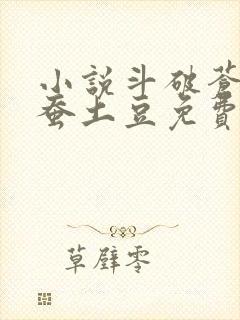 小說斗破蒼
蚕土豆免費
草壁零